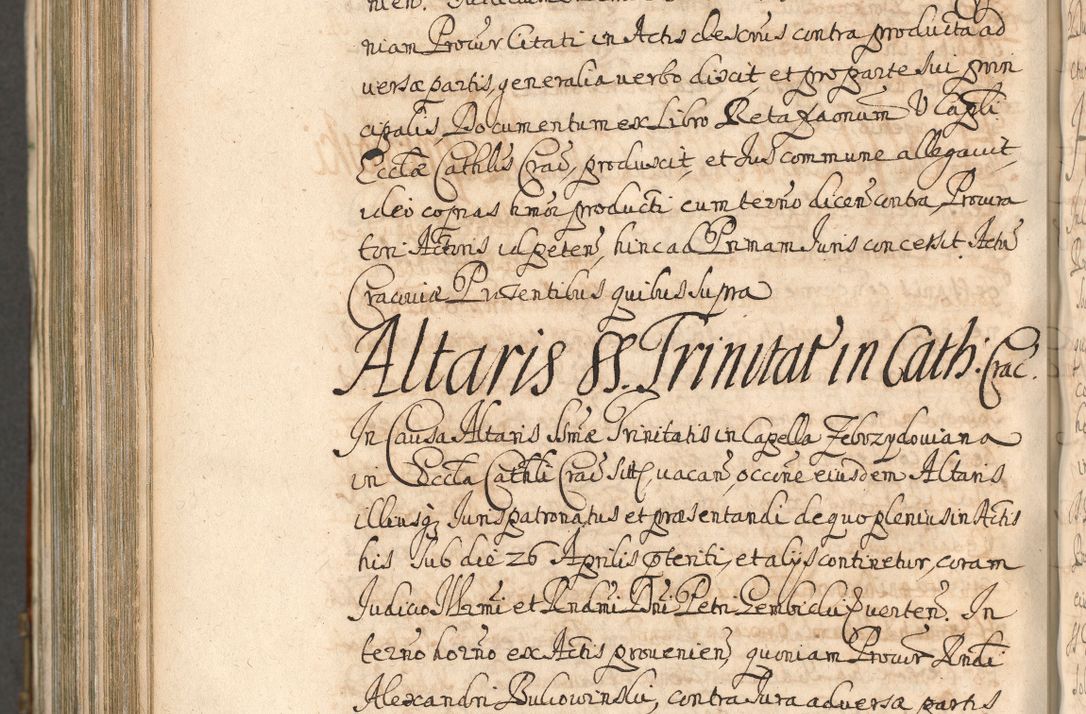 niam Procur Citati in Actis descrus contra producta ad
versæ partis, generalia verbo dixit, et pro parte sui prin
cipalis Documentum ex Libro Retaxaonum V Capli
Ecclæ Cathlis Crac, produxit, et Jus commune allegavit,
ideo copias hmoi producti cum termo dicen contra Procura
tori Actoris id peten, hinc ad Primam Juris concessit. Actu
Cracoviæ Præsentibus quibus supra
Altaris SS. Trinitat in Cath: Crac.
In Causa Altaris SSmæ Trinitatis in Capella Zebrzydoviana
in Eccla Cathli Crac sitt, vacan, occõne eiusdem Altaris
illiusq Juris patronatus et præsentandi de quo plenius in Actis
his sub die 26 Aprilis pteriti, et alijs continetur, coram
Judicio Illrmi et Rndmi Dni Petri Gembicki verten. In
termo horno ex Actis provenien, quoniam Procur Rndi
Alexandri Bukowinski, contra Jura adversæ partis